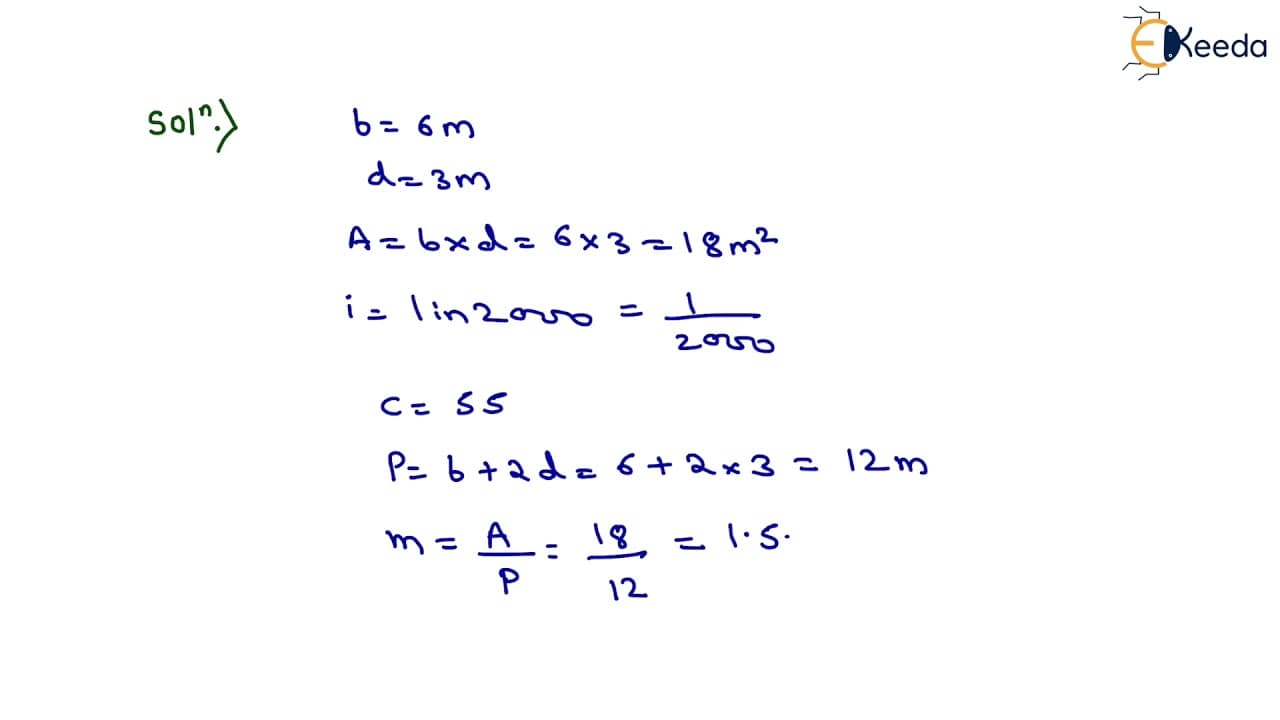 EKeeda
Solⁿ.)
b = 6m
d = 3m
A = b×d = 6×3 = 18m²
i = 1in2000 = 1/2000
C = 55
P = b+2d = 6+2×3 = 12m
m = A/P = 18/12 = 1.5.